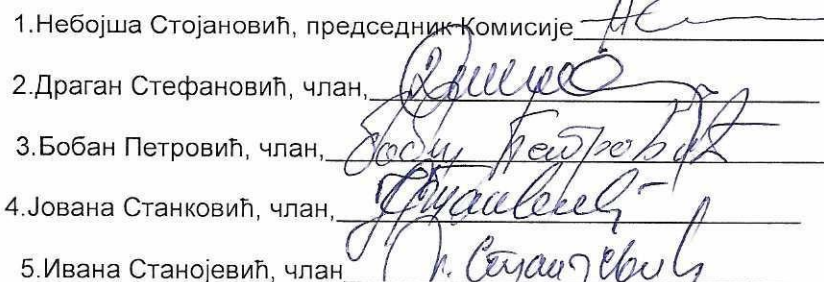 1.Небојша Стојановић, председник Комисије
2.Драган Стефановић, члан,
3.Бобан Петровић, члан, Бобан Петровић
4.Јована Станковић, члан,
5.Ивана Станојевић, члан